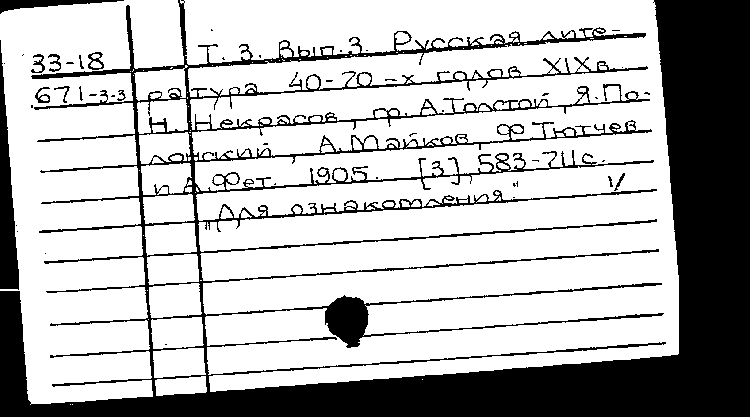 33-18 Т. 3. Вып. 3. Русская лите-
671-3-3 ратура 40-70-х годов XIX в.
Н. Некрасов, гр. А. Толстой, Я. По-
лонский, А. Майков, Ф. Тютчев
и А. Фет. 1905. [3], 583-711 с.
"Для ознакомления."